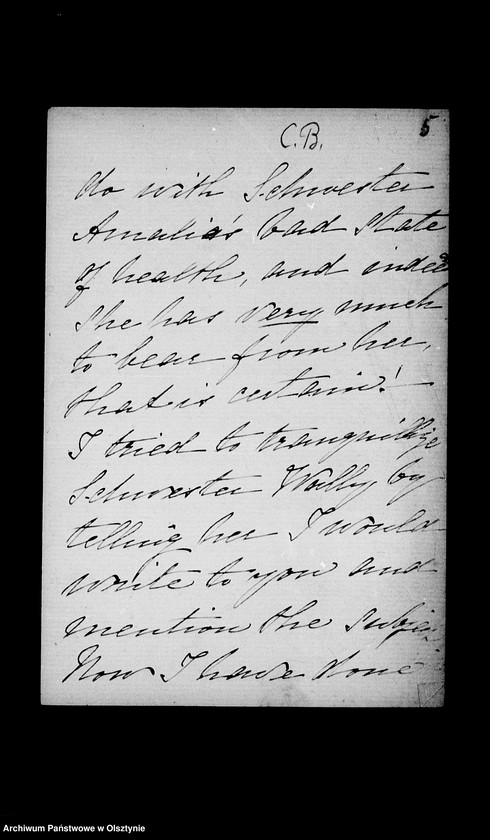 5
C.B.
do with Schwester
Amalia's bad state
of health, and indeed
she has very much
to bear from her,
that is certain!
I tried to tranquillize
Schwester Wally by
telling her I would
write to you and
mention the subject
Now I have done
Archiwum Państwowe w Olsztynie